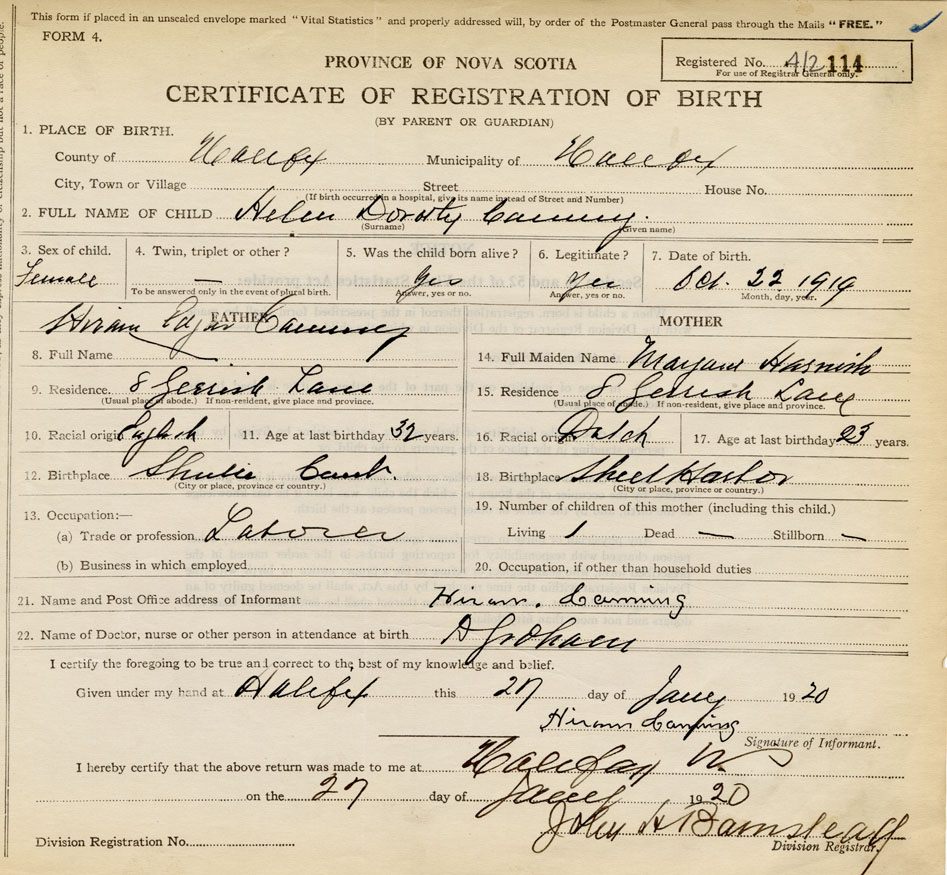 This form if placed in an unsealed envelope marked "Vital Statistics" and properly addressed will, by order of the Postmaster General pass through the Mails "FREE."
FORM 4.
Registered No. 412 114
For use of Registrar General only.
PROVINCE OF NOVA SCOTIA
CERTIFICATE OF REGISTRATION OF BIRTH
(BY PARENT OR GUARDIAN)
1. PLACE OF BIRTH.
County of Halifax Municipality of Halifax
City, Town or Village Street House No.
(If birth occurred in a hospital, give its name instead of Street and Number)
2. FULL NAME OF CHILD Helen Dorothy Canning.
(Surname) (Given name)
3. Sex of child. 4. Twin, triplet or other? 5. Was the child born alive? 6. Legitimate? 7. Date of birth.
Female — Yes Yes Oct. 22 1919
To be answered only in the event of plural birth. Answer, yes or no. Answer, yes or no. Month, day, year.
FATHER
Hiram Edgar Canning
8. Full Name
9. Residence. 8 Gerrish Lane
(Usual place of abode.) If non-resident, give place and province.
10. Racial origin English 11. Age at last birthday 32 years.
12. Birthplace Shulie Cumb.
(City or place, province or country.)
13. Occupation:—
(a) Trade or profession Laborer
(b) Business in which employed
MOTHER
14. Full Maiden Name Harnish
15. Residence 8 Gerrish Lane
(Usual place of abode.) If non-resident, give place and province.
16. Racial origin Dutch 17. Age at last birthday 23 years.
18. Birthplace Sheet Harbor
(City or place, province or country.)
19. Number of children of this mother (including this child.)
Living 1 Dead — Stillborn —
20. Occupation, if other than household duties
21. Name and Post Office address of Informant Hiram. Canning
22. Name of Doctor, nurse or other person in attendance at birth
I certify the foregoing to be true and correct to the best of my knowledge and belief.
Given under my hand at Halifax this 27 day of Jany 1920
Hiram Canning
Signature of Informant.
I hereby certify that the above return was made to me at Halifax
on the 27 day of Jany 1920
John H Barnstead
Division Registrar.
Division Registration No.